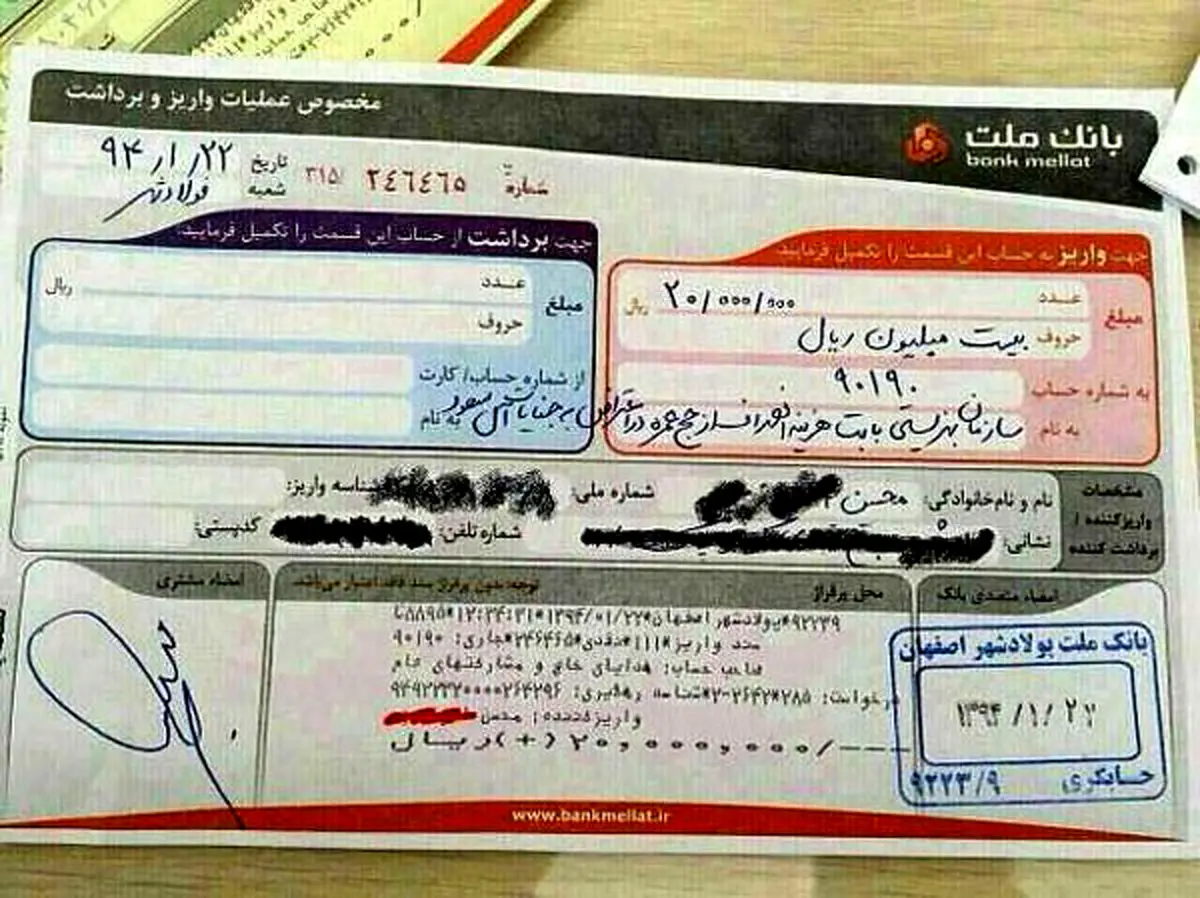 مخصوص عملیات واریز و برداشت
بانک ملت
bank mellat
شماره ۲۴۶۴۶۵ ۳۱۵
تاریخ ۹۴/۱/۲۲
شعبه فولادشهر
جهت واریز به حساب این قسمت را تکمیل فرمایید.
مبلغ
عدد ۲۰/۰۰۰/۰۰۰ ریال
حروف بیست میلیون ریال
به شماره حساب ۹۰۱۹۰
به نام سازمان بهزیستی بابت هزینه انصراف از حج عمره در اعتراض به جنایات آل سعود
جهت برداشت از حساب این قسمت را تکمیل فرمایید.
مبلغ
عدد ریال
حروف
از شماره حساب/ کارت
به نام
مشخصات واریزکننده / برداشت کننده
نام و نام‌خانوادگی: محسن شماره ملی: شناسه واریز:
نشانی: شماره تلفن: کدپستی:
امضاء متصدی بانک
محل پرفراژ
توجه: بدون پرفراژ سند فاقد اعتبار می‌باشد.
امضاء مشتری
۹۲۲۳۹*پولادشهر اصفهان*۱۳۹۴/۰۱/۲۲*۱۲:۳۴:۳۱
سند واریز*۱۱۱*نقدی*۲۴۶۴۶۵*جاری: ۹۰۱۹۰
صاحب حساب: هدایای خاص و مشارکتهای عام
واریزکننده: محسن
۲۰,۰۰۰,۰۰۰/---(+)ریال
بانک ملت پولادشهر اصفهان
۱۳۹۴/۱/۲۲
حسابگری ۹۲۲۳/۹
www.bankmellat.ir